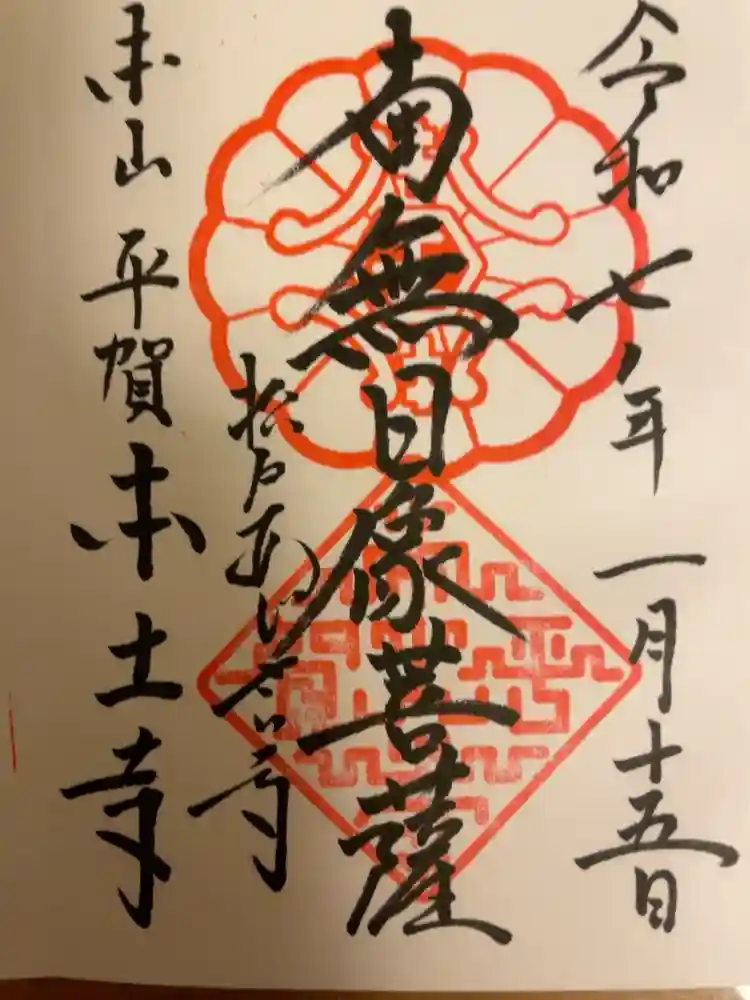 令和七年一月十五日
南無日像菩薩
松戸あじさい寺
本山 平賀本土寺